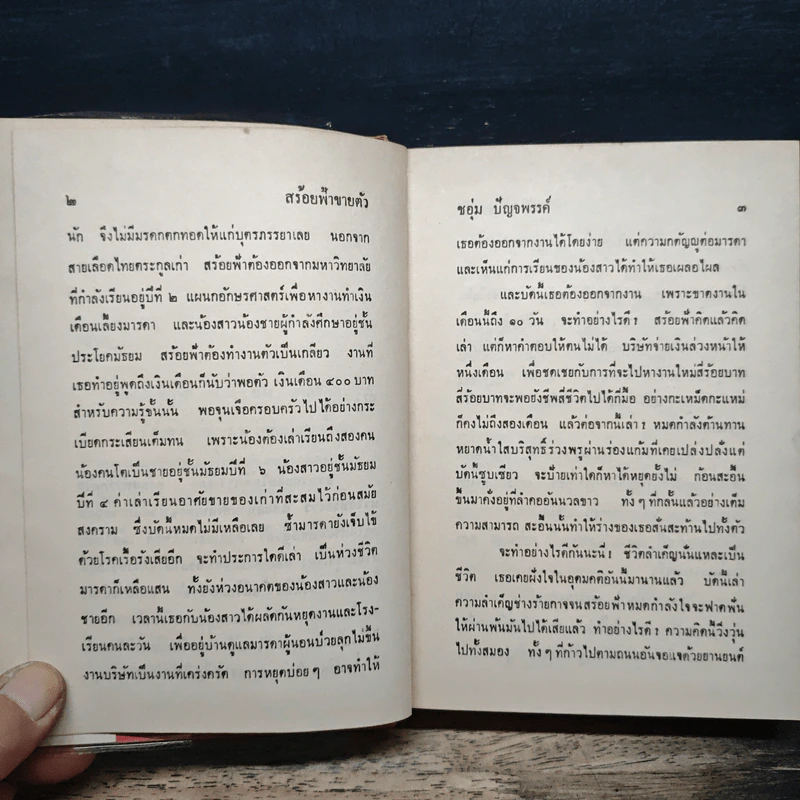 ๒ สร้อยฟ้าขายตัว
นัก จึงไม่มีมรดกตกทอดให้แก่บุตรภรรยาเลย นอกจาก
สายเลือดไทยตระกูลเก่า สร้อยฟ้าต้องออกจากมหาวิทยาลัย
ที่กำลังเรียนอยู่ปีที่ ๒ แผนกอักษรศาสตร์เพื่อหางานทำเงิน
เดือนเลี้ยงมารดา และน้องสาวน้องชายผู้กำลังศึกษาอยู่ชั้น
ประโยคมัธยม สร้อยฟ้าต้องทำงานตัวเป็นเกลียว งานที่
เธอทำอยู่พูดถึงเงินเดือนก็นับว่าพอตัว เงินเดือน ๔๐๐ บาท
สำหรับความรู้ชั้นนั้น พอจุนเจือครอบครัวไปได้อย่างกระ
เบียดกระเสียนเต็มทน เพราะน้องต้องเล่าเรียนถึงสองคน
น้องคนโตเป็นชายอยู่ชั้นมัธยมปีที่ ๖ น้องสาวอยู่ชั้นมัธยม
ปีที่ ๔ ค่าเล่าเรียนอาศัยขายของเก่าที่สะสมไว้ก่อนสมัย
สงคราม ซึ่งบัดนี้หมดไม่มีเหลือเลย ซ้ำมารดายังเจ็บไข้
ด้วยโรคเรื้อรังเสียอีก จะทำประการใดดีเล่า เป็นห่วงชีวิต
มารดาก็เหลือแสน ทั้งยังห่วงอนาคตของน้องสาวและน้อง
ชายอีก เวลานี้เธอกับน้องสาวได้ผลัดกันหยุดงานและโรง-
เรียนคนละวัน เพื่ออยู่บ้านดูแลมารดาผู้นอนป่วยลุกไม่ขึ้น
งานบริษัทเป็นงานที่เคร่งครัด การหยุดบ่อย ๆ อาจทำให้
ชอุ่ม ปัญจพรรค์ ๓
เธอต้องออกจากงานได้โดยง่าย แต่ความกตัญญูต่อมารดา
และเห็นแก่การเรียนของน้องสาวได้ทำให้เธอเผลอไผล
และบัดนี้เธอต้องออกจากงาน เพราะขาดงานใน
เดือนนี้ถึง ๑๐ วัน จะทำอย่างไรดี? สร้อยฟ้าคิดแล้วคิด
เล่า แต่ก็หาคำตอบให้ตนไม่ได้ บริษัทจ่ายเงินล่วงหน้าให้
หนึ่งเดือน เพื่อชดเชยกับการที่จะไปหางานใหม่สี่ร้อยบาท
สี่ร้อยบาทจะพอยังชีพสี่ชีวิตไปได้กี่มื้อ อย่างกะเหม็ดกะแหม่
ก็คงไม่ถึงสองเดือน แล้วต่อจากนี้เล่า? หมดกำลังต้านทาน
หยาดน้ำใสบริสุทธิ์ร่วงพรูผ่านร่องแก้มที่เคยเปล่งปลั่งแต่
บัดนี้ซูบเซียว จะป้ายเท่าใดก็หาได้หยุดยั้งไม่ ก้อนสะอื้น
ขึ้นมาคั่งอยู่ที่ลำคออันนวลขาว ทั้ง ๆ ที่กลั้นแล้วอย่างเต็ม
ความสามารถ สะอื้นนั้นทำให้ร่างของเธอสั่นสะท้านไปทั้งตัว
จะทำอย่างไรดีกันนะนี่? ชีวิตลำเค็ญนั่นแหละเป็น
ชีวิต เธอเคยฝังใจในอุดมคติอันนี้มานานแล้ว บัดนี้เล่า
ความลำเค็ญช่างร้ายกาจจนสร้อยฟ้าหมดกำลังใจจะฟาดฟัน
ให้ผ่านพ้นมันไปได้เสียแล้ว ทำอย่างไรดี? ความคิดนี้วิ่งวุ่น
ไปทั้งสมอง ทั้ง ๆ ที่ก้าวไปตามถนนอันจอแจด้วยยานยนต์